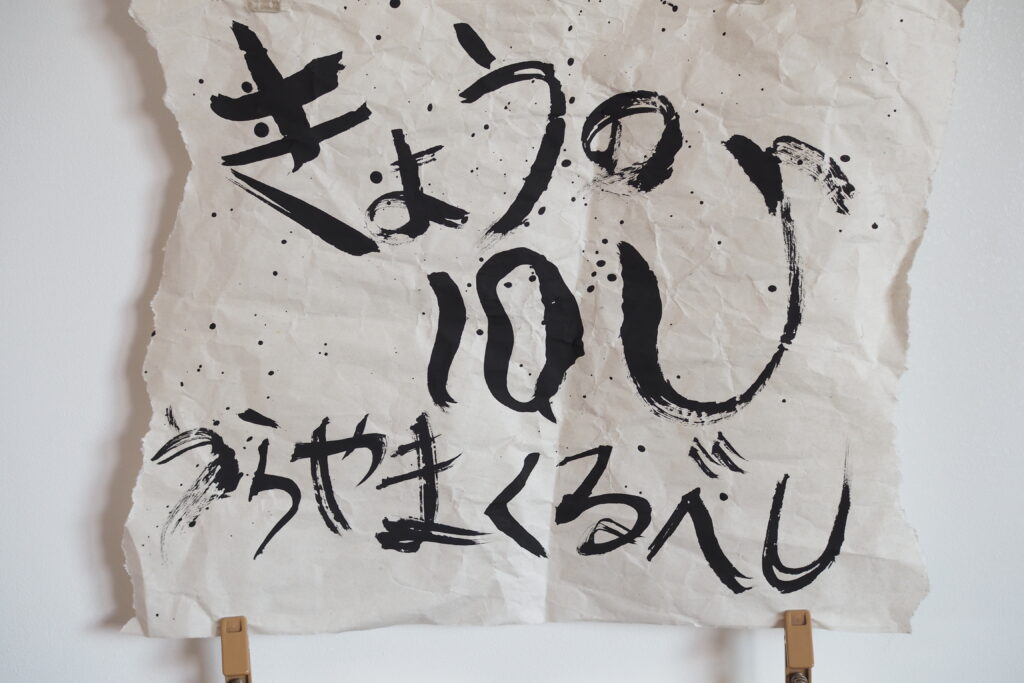 きょうの
10じ
うらやまくるべし